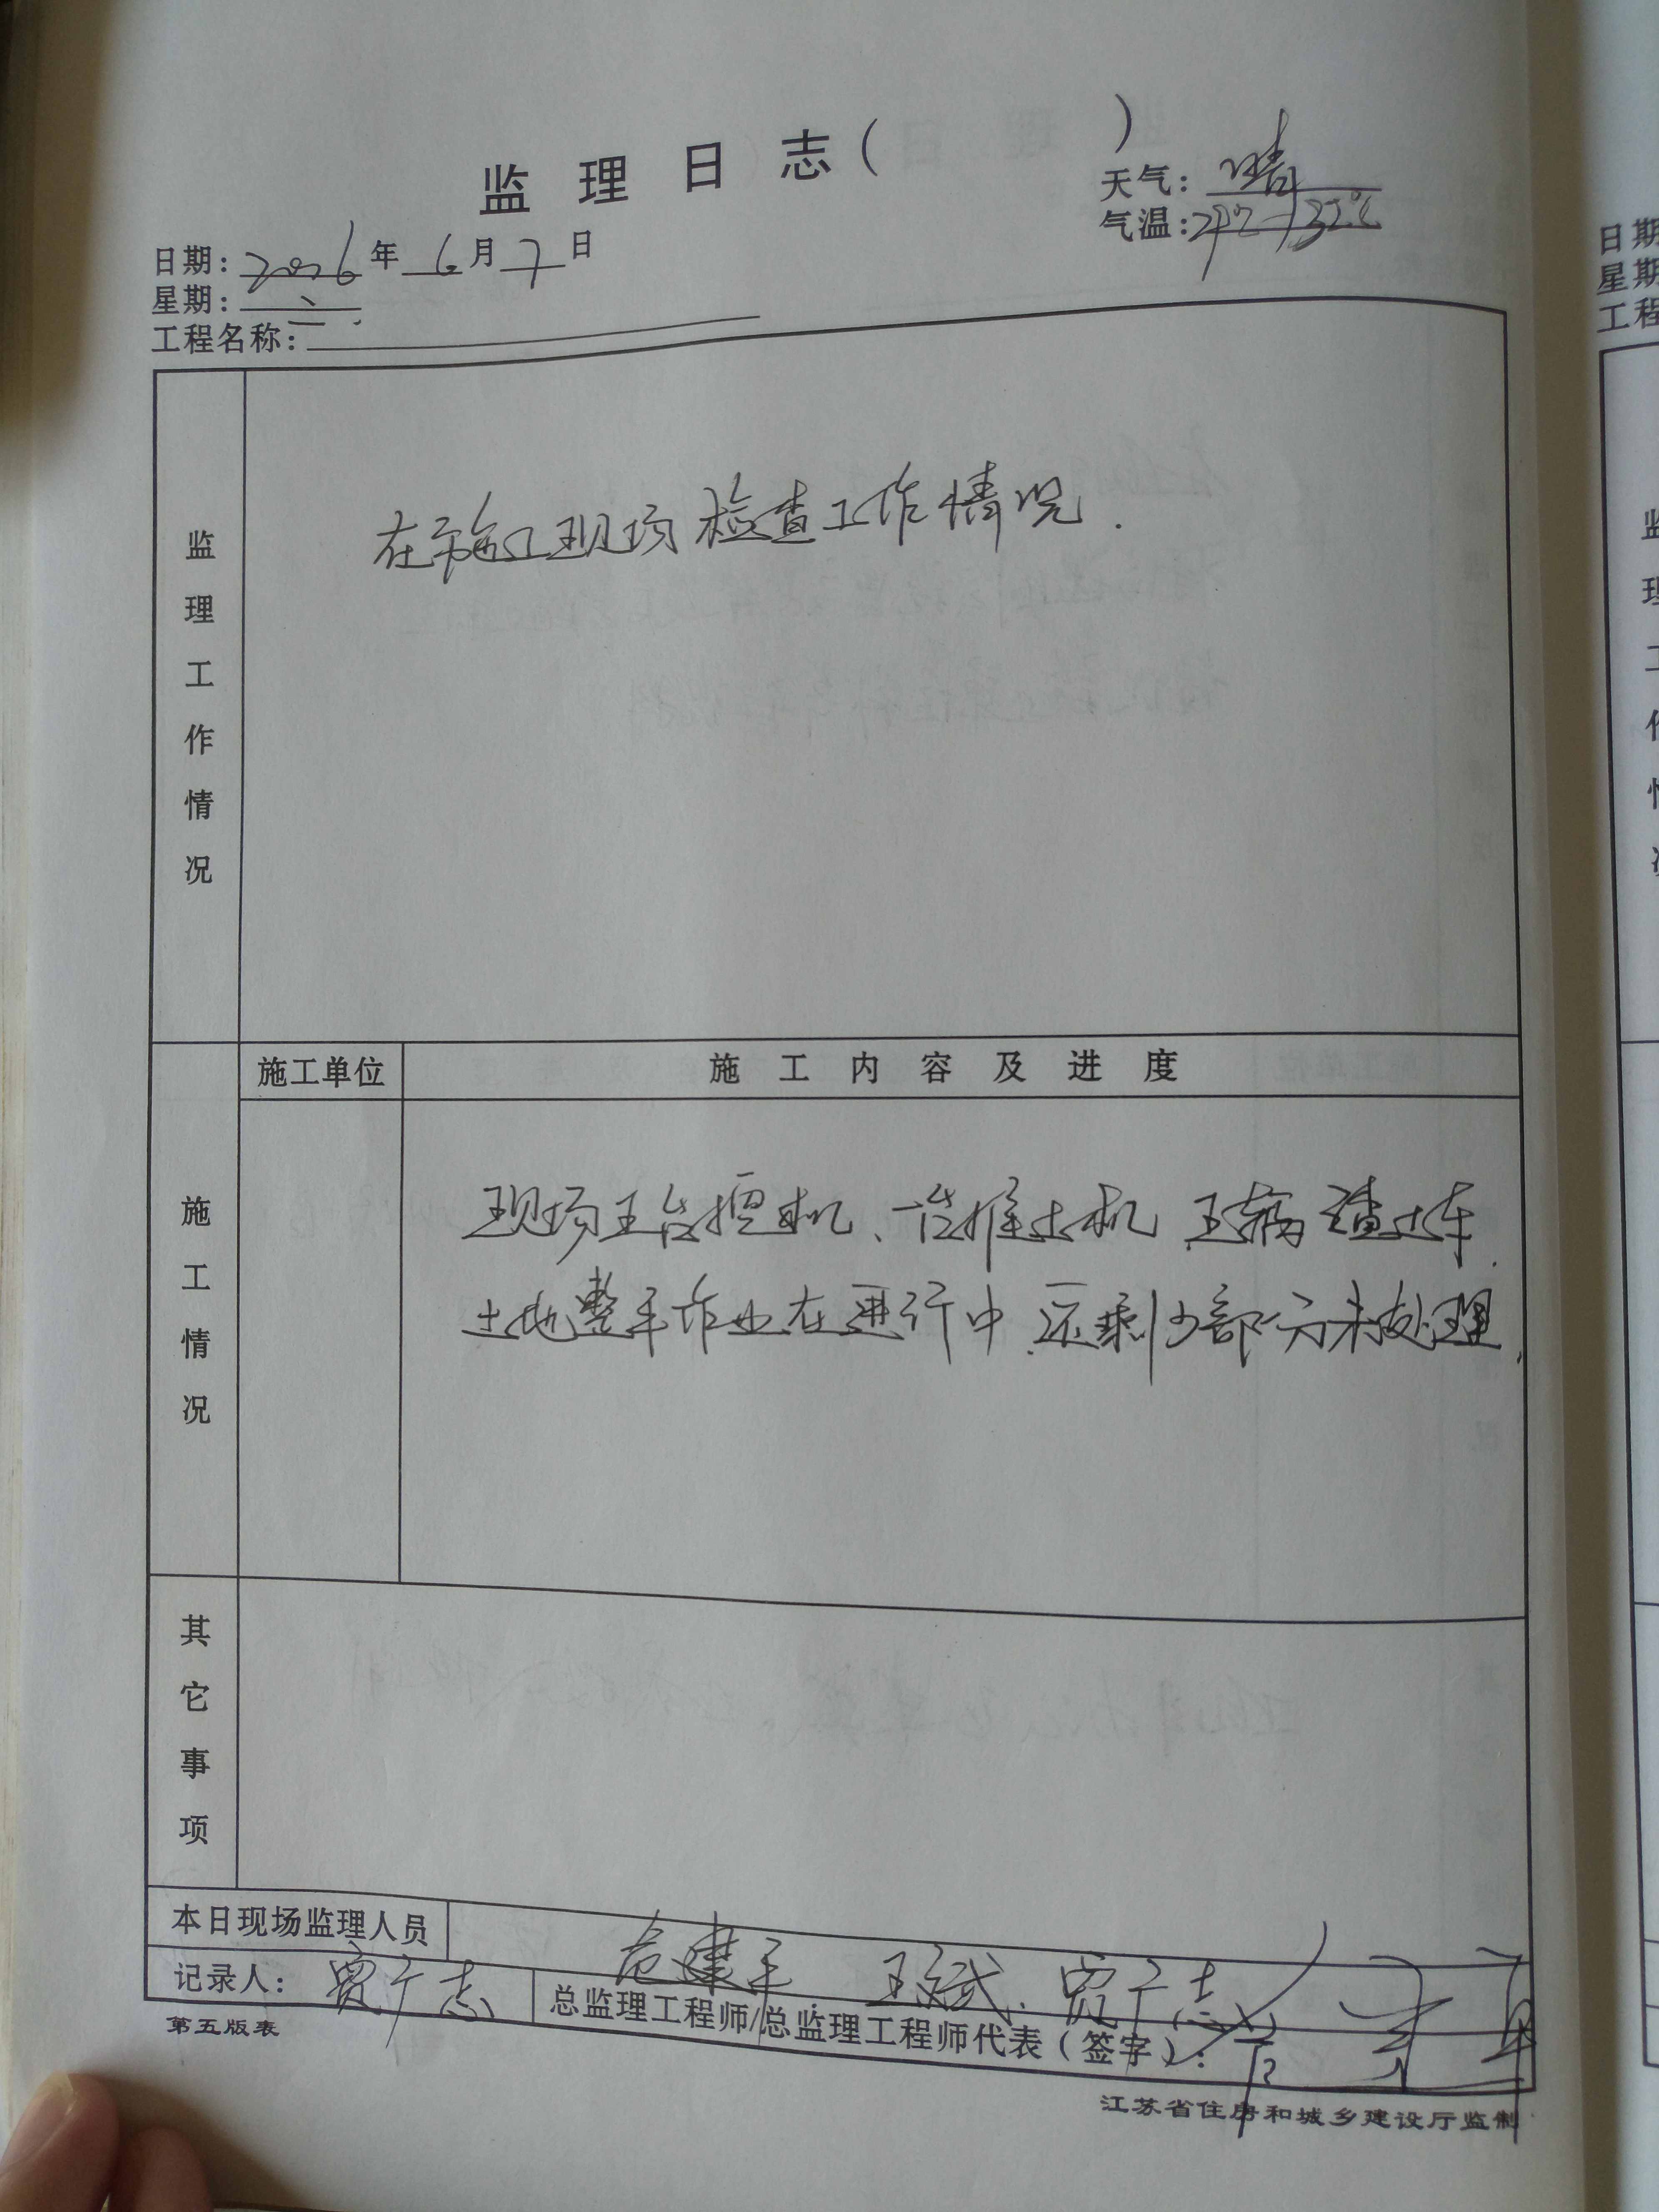 监理日志（ ）
天气：晴
气温：
日期：2016年6月7日
星期：二
工程名称：
监理工作情况
在施工现场检查工作情况.
施工单位
施工内容及进度
施工情况
现场五台挖机、一台推土机 五辆渣土车.
土地整平作业在进行中.还剩少部分未处理.
其它事项
本日现场监理人员
建平 王斌、贾广志
记录人：贾广志
总监理工程师/总监理工程师代表（签字）：
第五版表
江苏省住房和城乡建设厅监制
日期
星期
工程